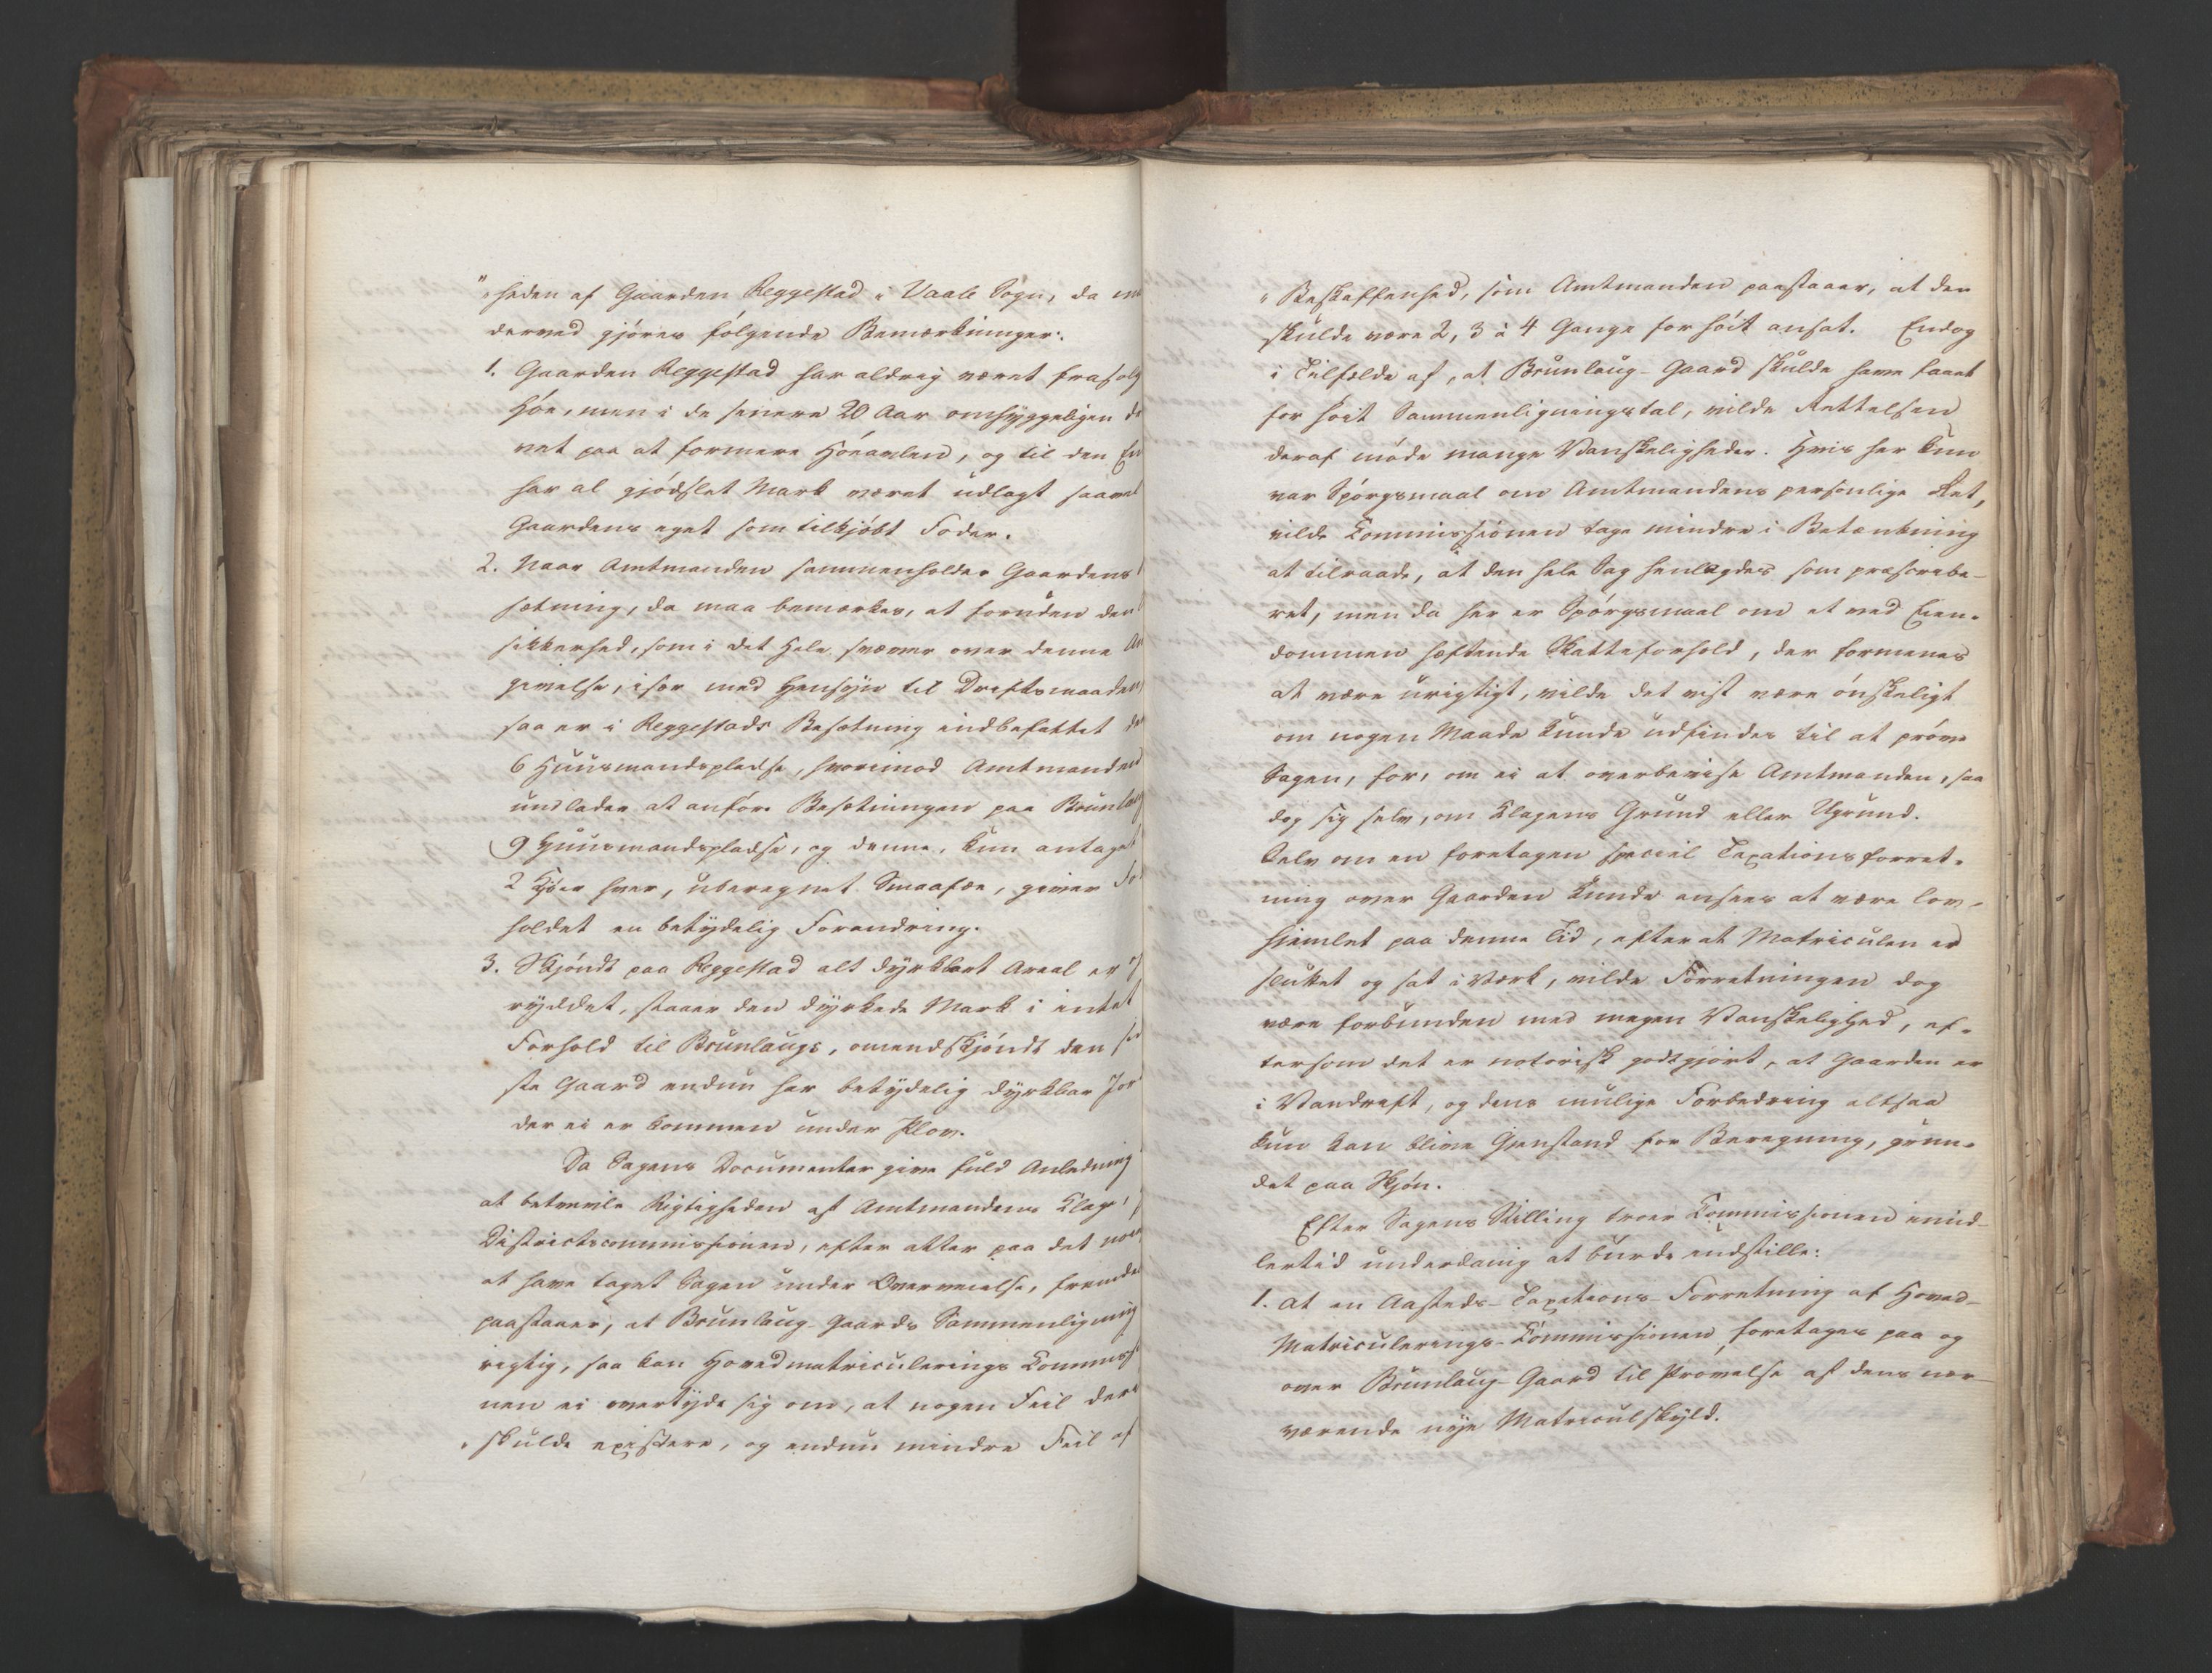 "heden af Gaarden Reggestad i Vaale Sogn, da
derved gjøres følgende Bemærkninger:
1. Gaarden Reggestad har aldrig været frasolg
Høe, men i de senere 20 Aar omhyggeligen
vet paa at formere Høeavlen, og til den
har al gjødslet Mark været udlagt saavel
Gaardens eget som tilkjøbt Foder.
2. Naar Amtmanden sammenholder Gaardens
sætning, da maa bemærkes, at foruden den
sikkerhed, som i det Hele svæver over denne
givelse, især med Hensyn til Driftsmaaden
saa er i Reggestads Besætning indbefattet
6 Huusmandspladse, hvorimod Amtmanden
undlader at anføre Besætningen paa Brunlaug
9 Huusmandspladse, og denne, kun antaget
2 Kjør hver, uberegnet Smaafæe, giver
holdet en betydelig Forandring.
3. Skjøndt paa Reggestad alt dyrkbart Areal er
ryddet, staaer den dyrkede Mark i intet
Forhold til Brunlaugs, omendskjøndt den
ste Gaard endnu har betydelig dyrkbar Jor
der ei er kommen under Plov.
Da Sagens Documenter give fuld Anledning
at betvivle Rigtigheden af Amtmandens Klage,
Districtscommissionen, efter atter paa det
at have taget Sagen under Overveielse, fremde
paastaaer, at Brunlaug-Gaards Sammenligning
rigtig, saa kan Hovedmatriculerings Commissi
nen ei overtyde sig om, at nogen Feil
skulde existere, og endnu mindre Feil af
"Beskaffenhed, som Amtmanden paastaaer, at den
skulde være 2, 3 à 4 Gange for høit ansat. Endog
i Tilfælde af, at Brunlaug-Gaard skulde have faaet
for høit Sammenligningstal, vilde Rettelsen
deraf møde mange Vanskeligheder. Hvis her kun
var Spørgsmaal om Amtmandens personlige Ret,
vilde Commissionen tage mindre i Betænkning
at tilraade, at den hele Sag henlægdes som præscribe-
ret, men da her er Spørgsmaal om et ved Eien-
dommen hæftende Skatteforhold, der formenes
at være urigtigt, vilde det vist være ønskeligt
om nogen Maade kunde udfindes til at prøve
Sagen, for, om ei at overbevise Amtmanden, saa
dog sig selv, om Klagens Grund eller Ugrund.
Selv om en foretagen special Taxationsforret-
ning over Gaarden kunde ansees at være lov-
hjemlet paa denne Tid, efterat Matriculen er
sluttet og sat i Værk, vilde Forretningen dog
være forbunden med megen Vanskelighed, ef-
tersom det er notorisk godtgjort, at Gaarden er
i Vandrøft, og dens mulige Forbedring altsaa
kun kan blive Gjenstand for Beregning, grun-
det paa Skjøn.
Efter Sagens Stilling troer Commissionen imid-
lertid underdanig at burde indstille:
1. At en Aasteds-Taxations-Forretning af Hoved-
Matriculerings-Commissionen foretages paa og
over Brunlaug-Gaard til Prøvelse af dens nær-
værende nye Matriculskyld.